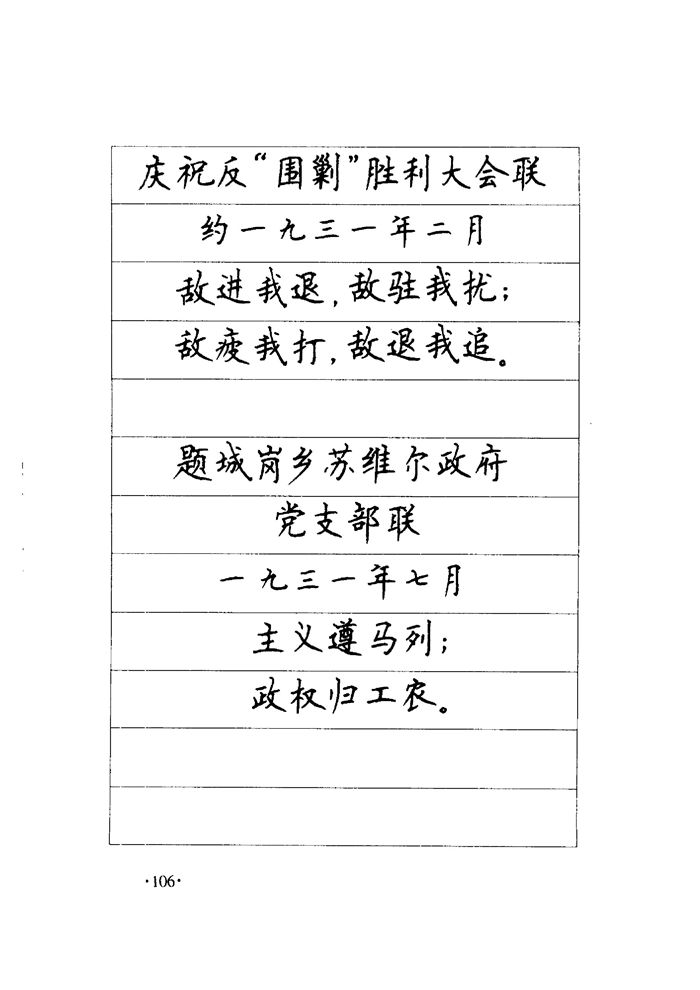 庆祝反“围剿”胜利大会联
约一九三一年二月
敌进我退，敌驻我扰；
敌疲我打，敌退我追。
题城岗乡苏维尔政府
党支部联
一九三一年七月
主义遵马列；
政权归工农。
·106·